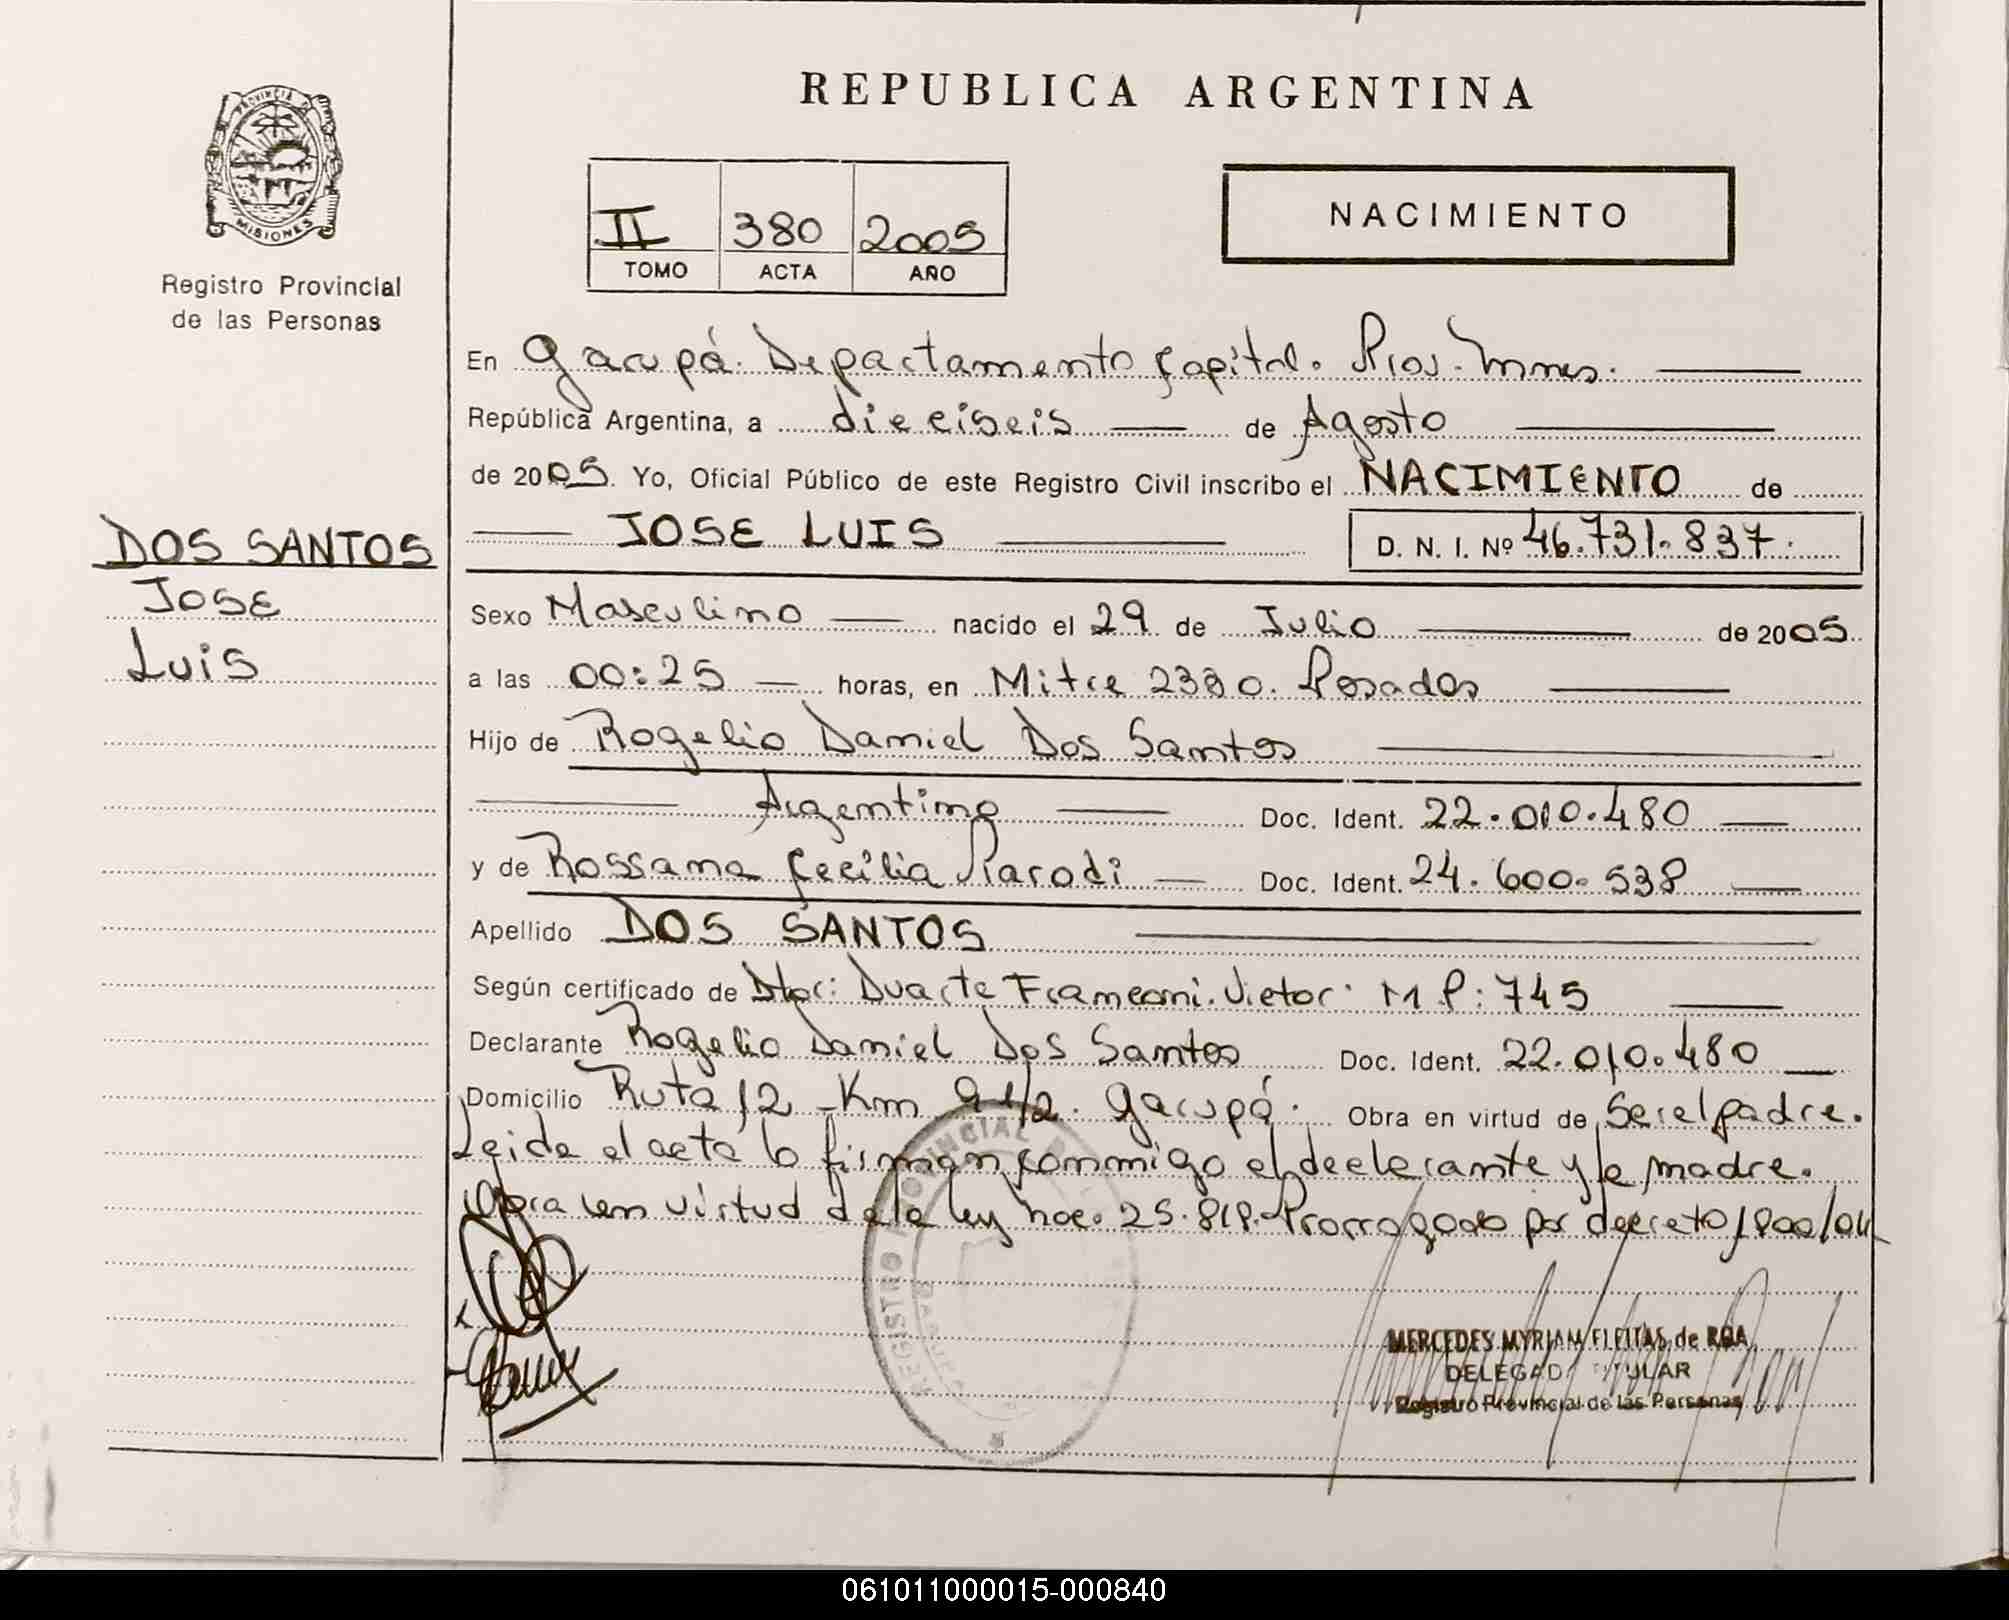 REPUBLICA ARGENTINA
PROVINCIA D
MISIONES
Registro Provincial
de las Personas
II 380 2005
TOMO ACTA AÑO
NACIMIENTO
En Garupá. Departamento Capital. Mnes.
República Argentina, a dieciseis de Agosto
de 2005. Yo, Oficial Público de este Registro Civil inscribo el NACIMIENTO de
JOSE LUIS D. N. I. Nº 46.731.837.
DOS SANTOS
JOSE
Luis
Sexo Masculino nacido el 29 de Julio de 2005
a las 00:25 horas, en Mitre 2380. Posadas
Hijo de Rogelio Daniel Dos Santos
Argentino Doc. Ident. 22.010.480
y de Rossana Cecilia Parodi Doc. Ident. 24.600.538
Apellido DOS SANTOS
Según certificado de Dtor: Duarte Victor M P: 745
Declarante Rogelio Daniel Dos Santos Doc. Ident. 22.010.480
Domicilio Ruta 12 Km 9 1/2. Garupá. Obra en virtud de Ser el padre.
Leida el acta la firman conmigo el declarante y la madre.
Obra en virtud de la ley nro. 25.819. Prorrogado por decreto 1800/04
REGISTRO PROVINCIAL D
MERCEDES MYRIAM FLEITAS de ROA
DELEGADA TITULAR
Registro Provincial de las Personas
061011000015-000840